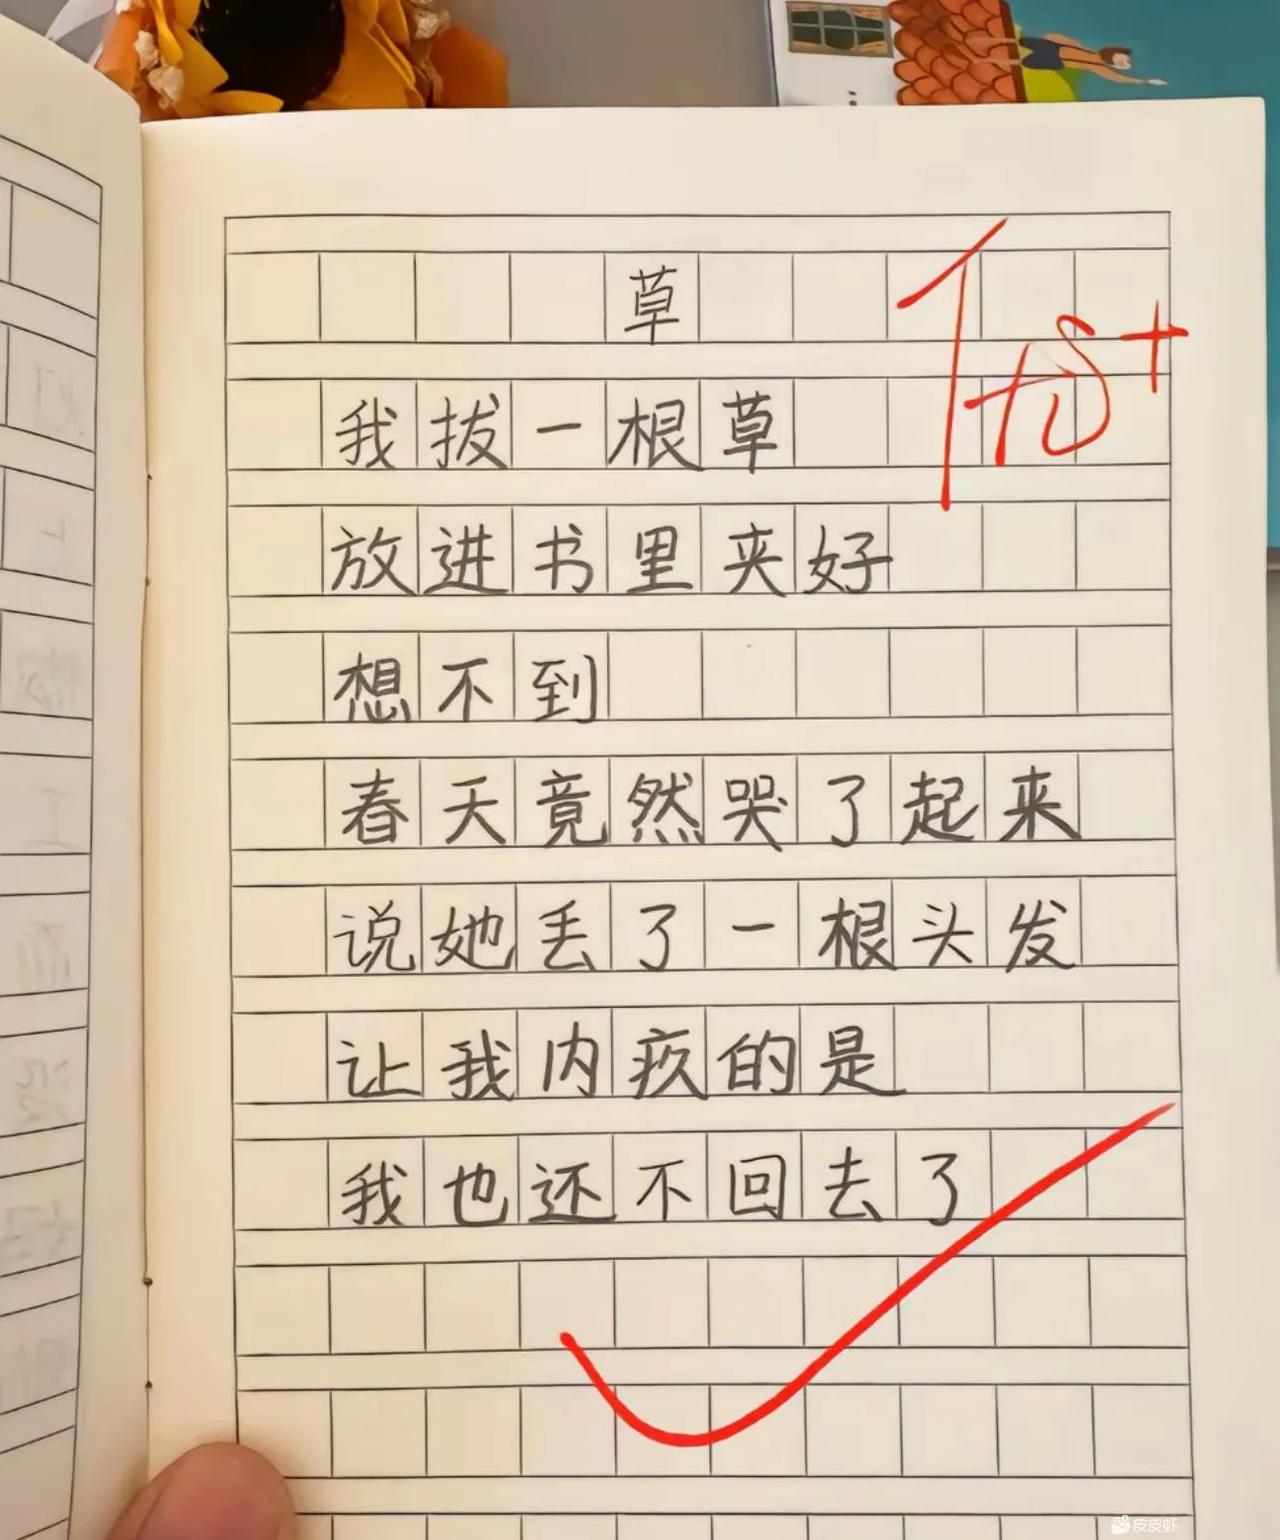 草
优+
我拔一根草
放进书里夹好
想不到
春天竟然哭了起来
说她丢了一根头发
让我内疚的是
我也还不回去了
皮皮虾